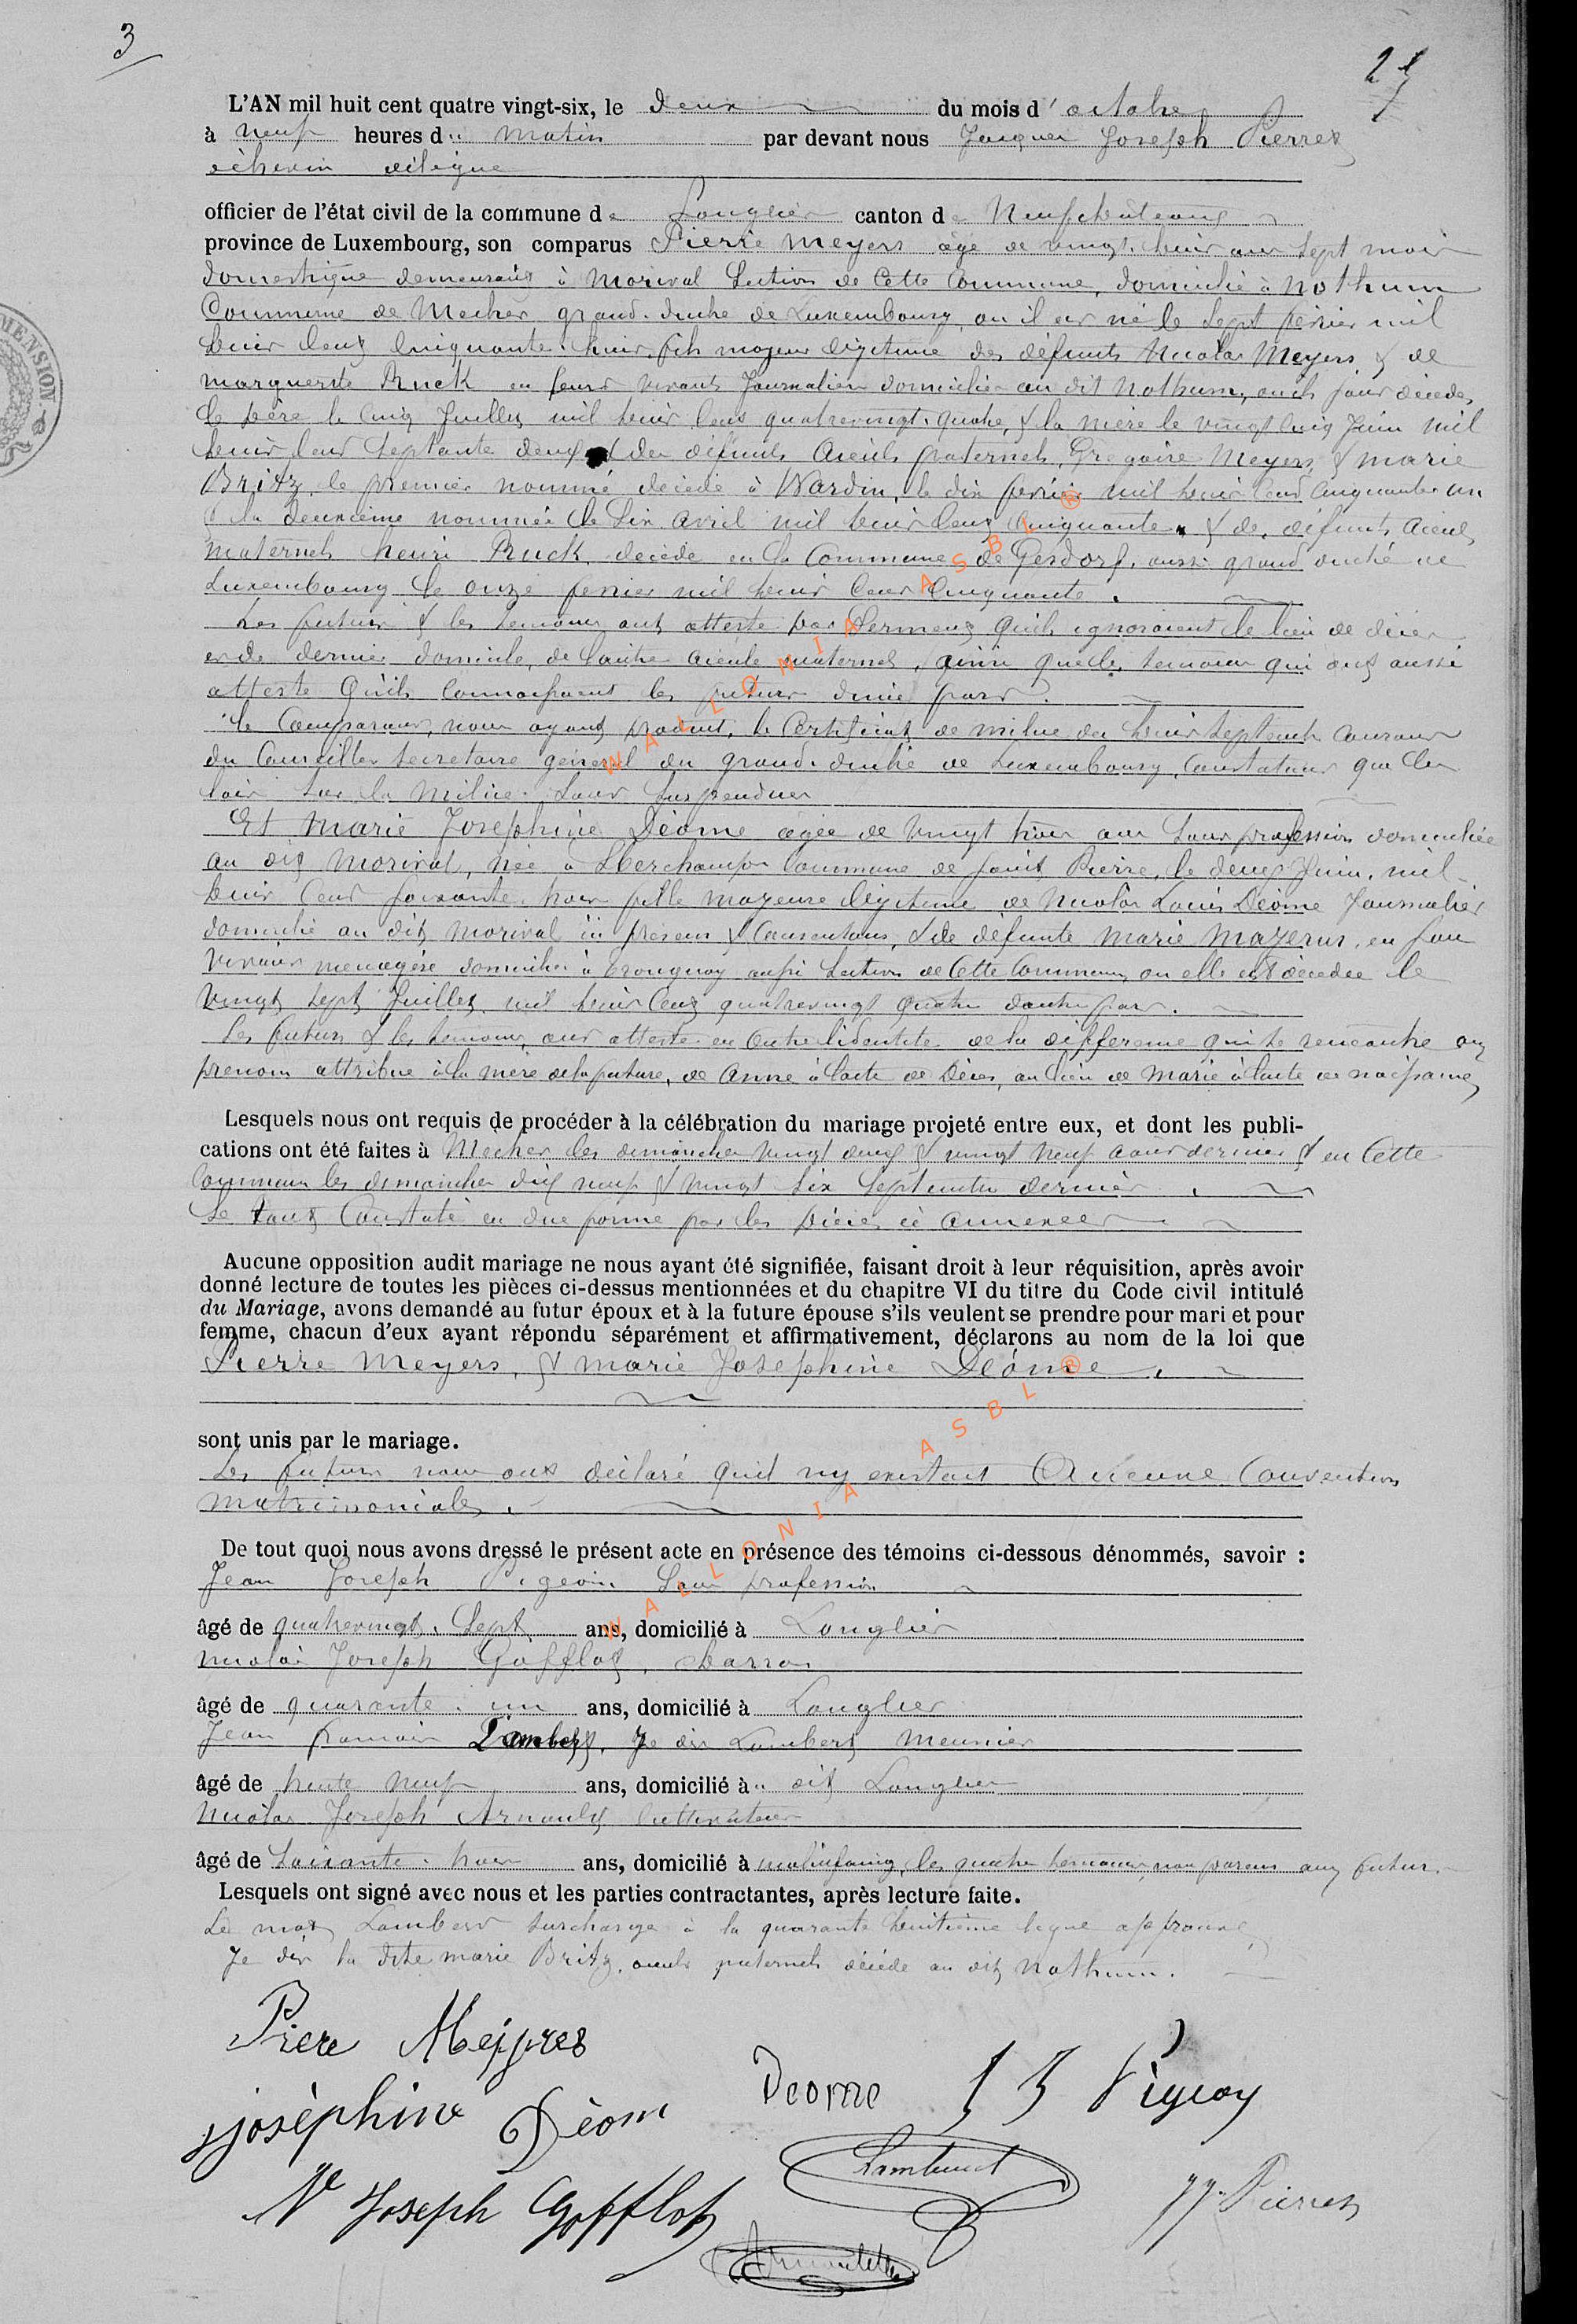 3
25
L'AN mil huit cent quatre vingt-six, le deux du mois d'octobre
à neuf heures du matin par devant nous Jacques Joseph Pierret
échevin délégué
officier de l'état civil de la commune de Longlier canton de Neufchâteau
province de Luxembourg, son comparus Pierre Meyers âgé de vingt-huit ans sept mois
domestique demeurant à Morival Section de Cette Commune, domicilié à Nothum
Commune de Mecher grand-duché de Luxembourg, où il est né le Sept février mil
huit Cent Cinquante-huit, fils majeur légitime des défunts Nicolas Meyers & de
Marguerite Ruck en leurs vivants Journaliers domiciliés au dit Nothum, où ils sont décédés
le père le Cinq Juillet mil huit Cent quatrevingt-quatre, & la mère le vingt Cinq Juin mil
huit Cent Septante deux & des défunts Aïeuls paternels, Grégoire Meyers & Marie
Britz, le premier nommé décédé à Wardin, le dix février mil huit Cent Cinquante un
& la deuxième nommée le Six avril mil huit Cent Cinquante & de défunts Aïeuls
Maternels henri Ruck, décédé en la Commune de Gesdorf, aussi grand duché de
Luxembourg le onze février mil huit Cent Cinquante.
Les futurs & les témoins ont attesté par Serment qu'ils ignoraient le lieu de décès
et de dernier domicile, de l'autre aïeule maternel, ainsi que les témoins qui ont aussi
attesté qu'ils Connaissent les futurs d'une part.
le Comparant, nous ayant produit, le Certificat de milice du huit Septembre Courant
du Conseiller Secrétaire général du grand-duché de Luxembourg, Constatant que les
lois Sur la Milice Sont Suspendues
Et Marie Josephine Déome âgée de vingt trois ans Sans profession domiciliée
au dit Morival, née à Sberchamps Commune de Saint Pierre, le deux Juin, mil
huit Cent Soixante trois fille majeure légitime de Nicolas Louis Déome Journalier
domicilié au dit Morival ici présent & Consentant, & de défunte Marie Mazerus, en son
vivant ménagère domiciliée à Tronquoy aussi Section de Cette Commune, où elle est décédée le
vingt Sept Juillet mil huit Cent quatrevingt quatre d'autre part.
Les futurs & les témoins ont attesté en Outre l'identité de la différence qui se rencontre au
prénom attribué à la mère de la future, de Anne à l'acte de Décès, au lieu de Marie à l'acte de naissance,
Lesquels nous ont requis de procéder à la célébration du mariage projeté entre eux, et dont les publi-
cations ont été faites à Mecher les dimanches vingt deux & vingt neuf août dernier & en Cette
Commune les dimanches dix neuf & vingt Six Septembre dernier.
Le tout Constaté en due forme par les pièces ci annexées.
Aucune opposition audit mariage ne nous ayant été signifiée, faisant droit à leur réquisition, après avoir
donné lecture de toutes les pièces ci-dessus mentionnées et du chapitre VI du titre du Code civil intitulé
du Mariage, avons demandé au futur époux et à la future épouse s'ils veulent se prendre pour mari et pour
femme, chacun d'eux ayant répondu séparément et affirmativement, déclarons au nom de la loi que
Pierre Meyers, & Marie Josephine Déome.
sont unis par le mariage.
Les futurs nous ont déclaré qu'il n'y existait Aucune Convention
Matrimoniale.
De tout quoi nous avons dressé le présent acte en présence des témoins ci-dessous dénommés, savoir :
Jean Joseph Sans profession
âgé de quatrevingt-Sept ans, domicilié à Longlier
Nicolas Joseph Gofflot, Charron
âgé de quarante-un ans, domicilié à Longlier
Jean Lambert, Je dis Lambert Meunier
âgé de trente neuf ans, domicilié à u dit Longlier
Nicolas Joseph Arnould, Cultivateur
âgé de Soixante-trois ans, domicilié à Molinfaing, les quatre témoins, non parents aux futurs
Lesquels ont signé avec nous et les parties contractantes, après lecture faite.
Le mot Lambert surchargé à la quarante huitième ligne approuvé
Je dis la dite Marie Britz, aïeule paternels décédé au dit Nothum.
Piere Meijres
Deome J J Pigeon
joséphine Déom
Lambert
Ns Joseph Gofflot JJ. Pierret
WALLONIA ASBL ®
WALLONIA ASBL ®